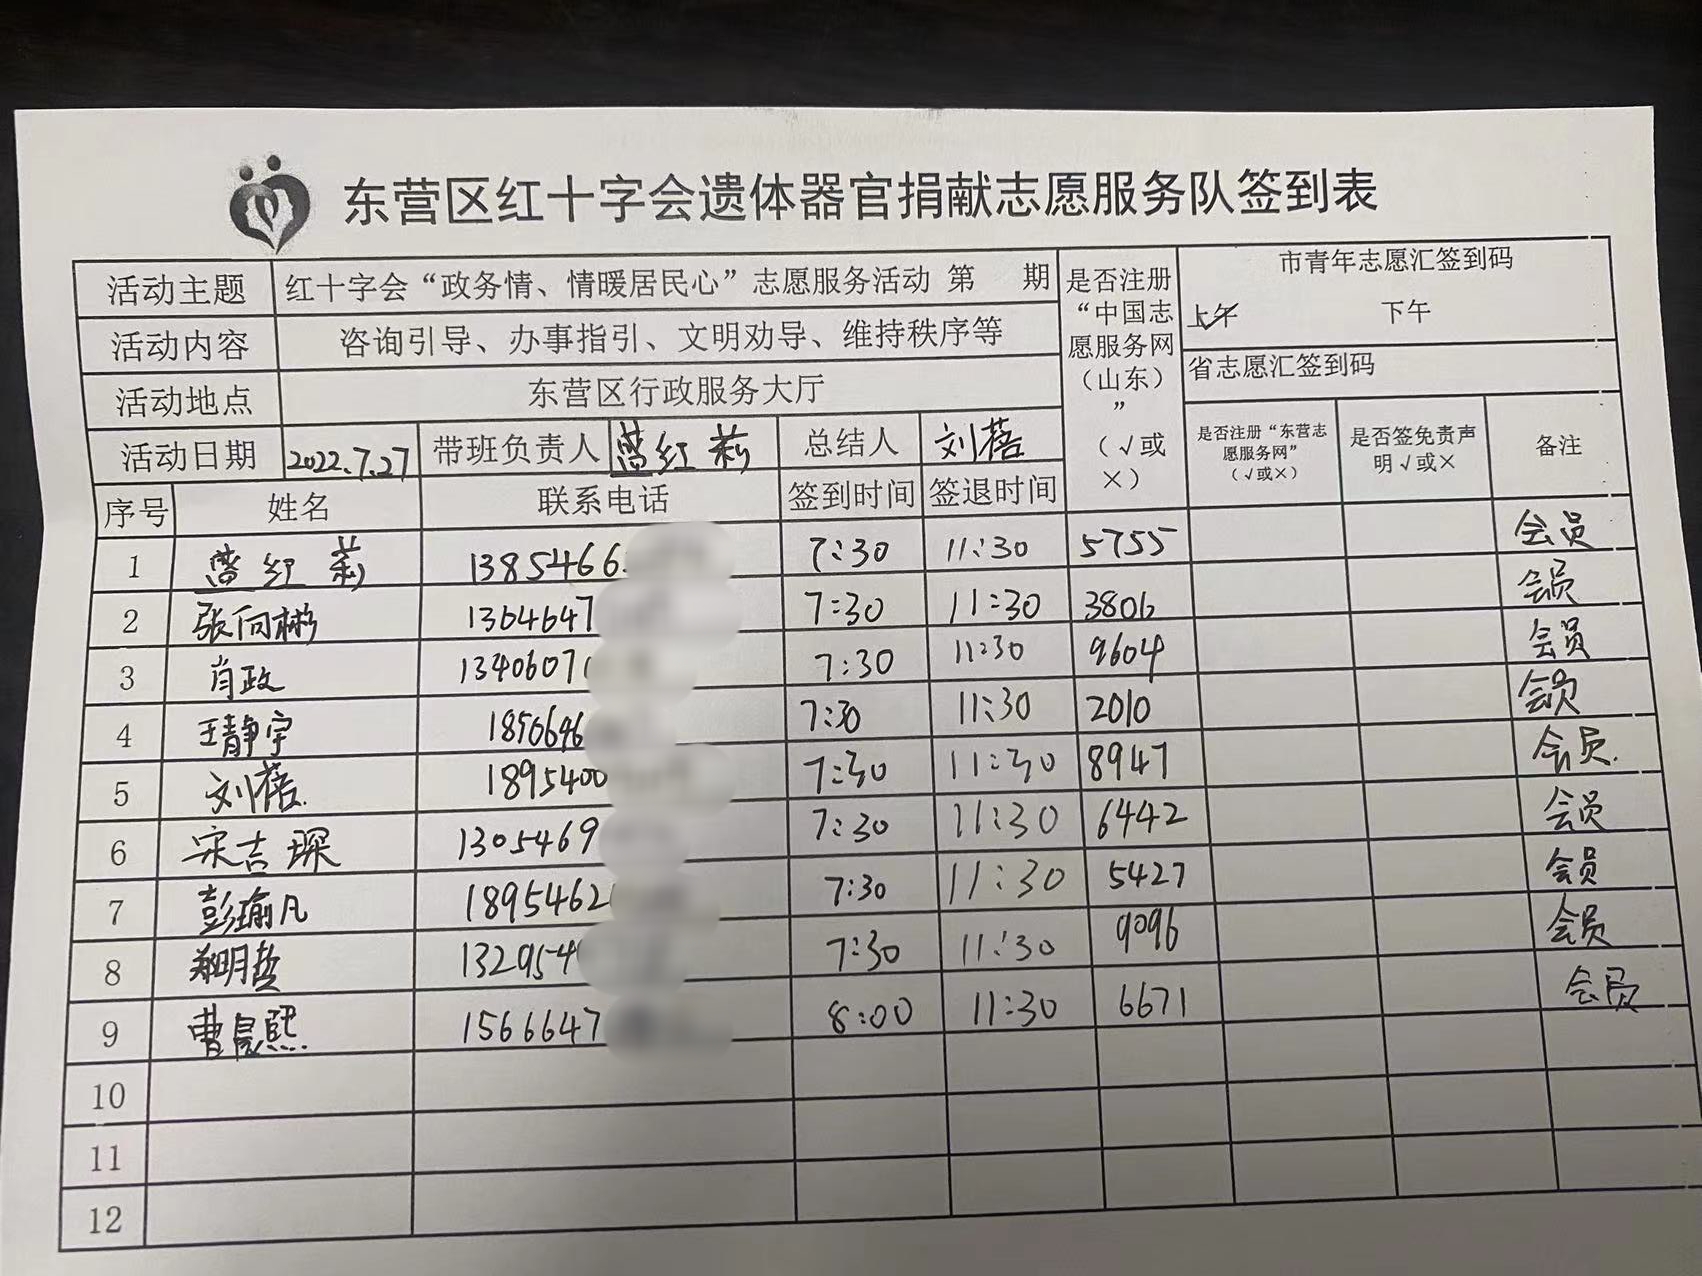 东营区红十字会遗体器官捐献志愿服务队签到表
活动主题 红十字会“政务情、情暖居民心”志愿服务活动 第 期
活动内容 咨询引导、办事指引、文明劝导、维持秩序等
活动地点 东营区行政服务大厅
活动日期 2022.7.27 带班负责人 红莉 总结人 刘蓓
是否注册“中国志愿服务网（山东）”（√或×）
市青年志愿汇签到码
上午 下午
省志愿汇签到码
是否注册“东营志愿服务网”（√或×） 是否签免责声明√或× 备注
序号 姓名 联系电话 签到时间 签退时间
1 红莉 1385466 7:30 11:30 5755 会员
2 张向彬 1364647 7:30 11:30 3806 会员
3 肖政 1340607 7:30 11:30 9604 会员
4 王静宇 1850646 7:30 11:30 2010 会员
5 刘蓓 1895400 7:30 11:30 8947 会员.
6 宋吉琛 1305469 7:30 11:30 6442 会员
7 彭瑜凡 1895462 7:30 11:30 5427 会员
8 郑明哲 132954 7:30 11:30 9096 会员
9 曹晨熙 1566647 8:00 11:30 6671 会员
10
11
12